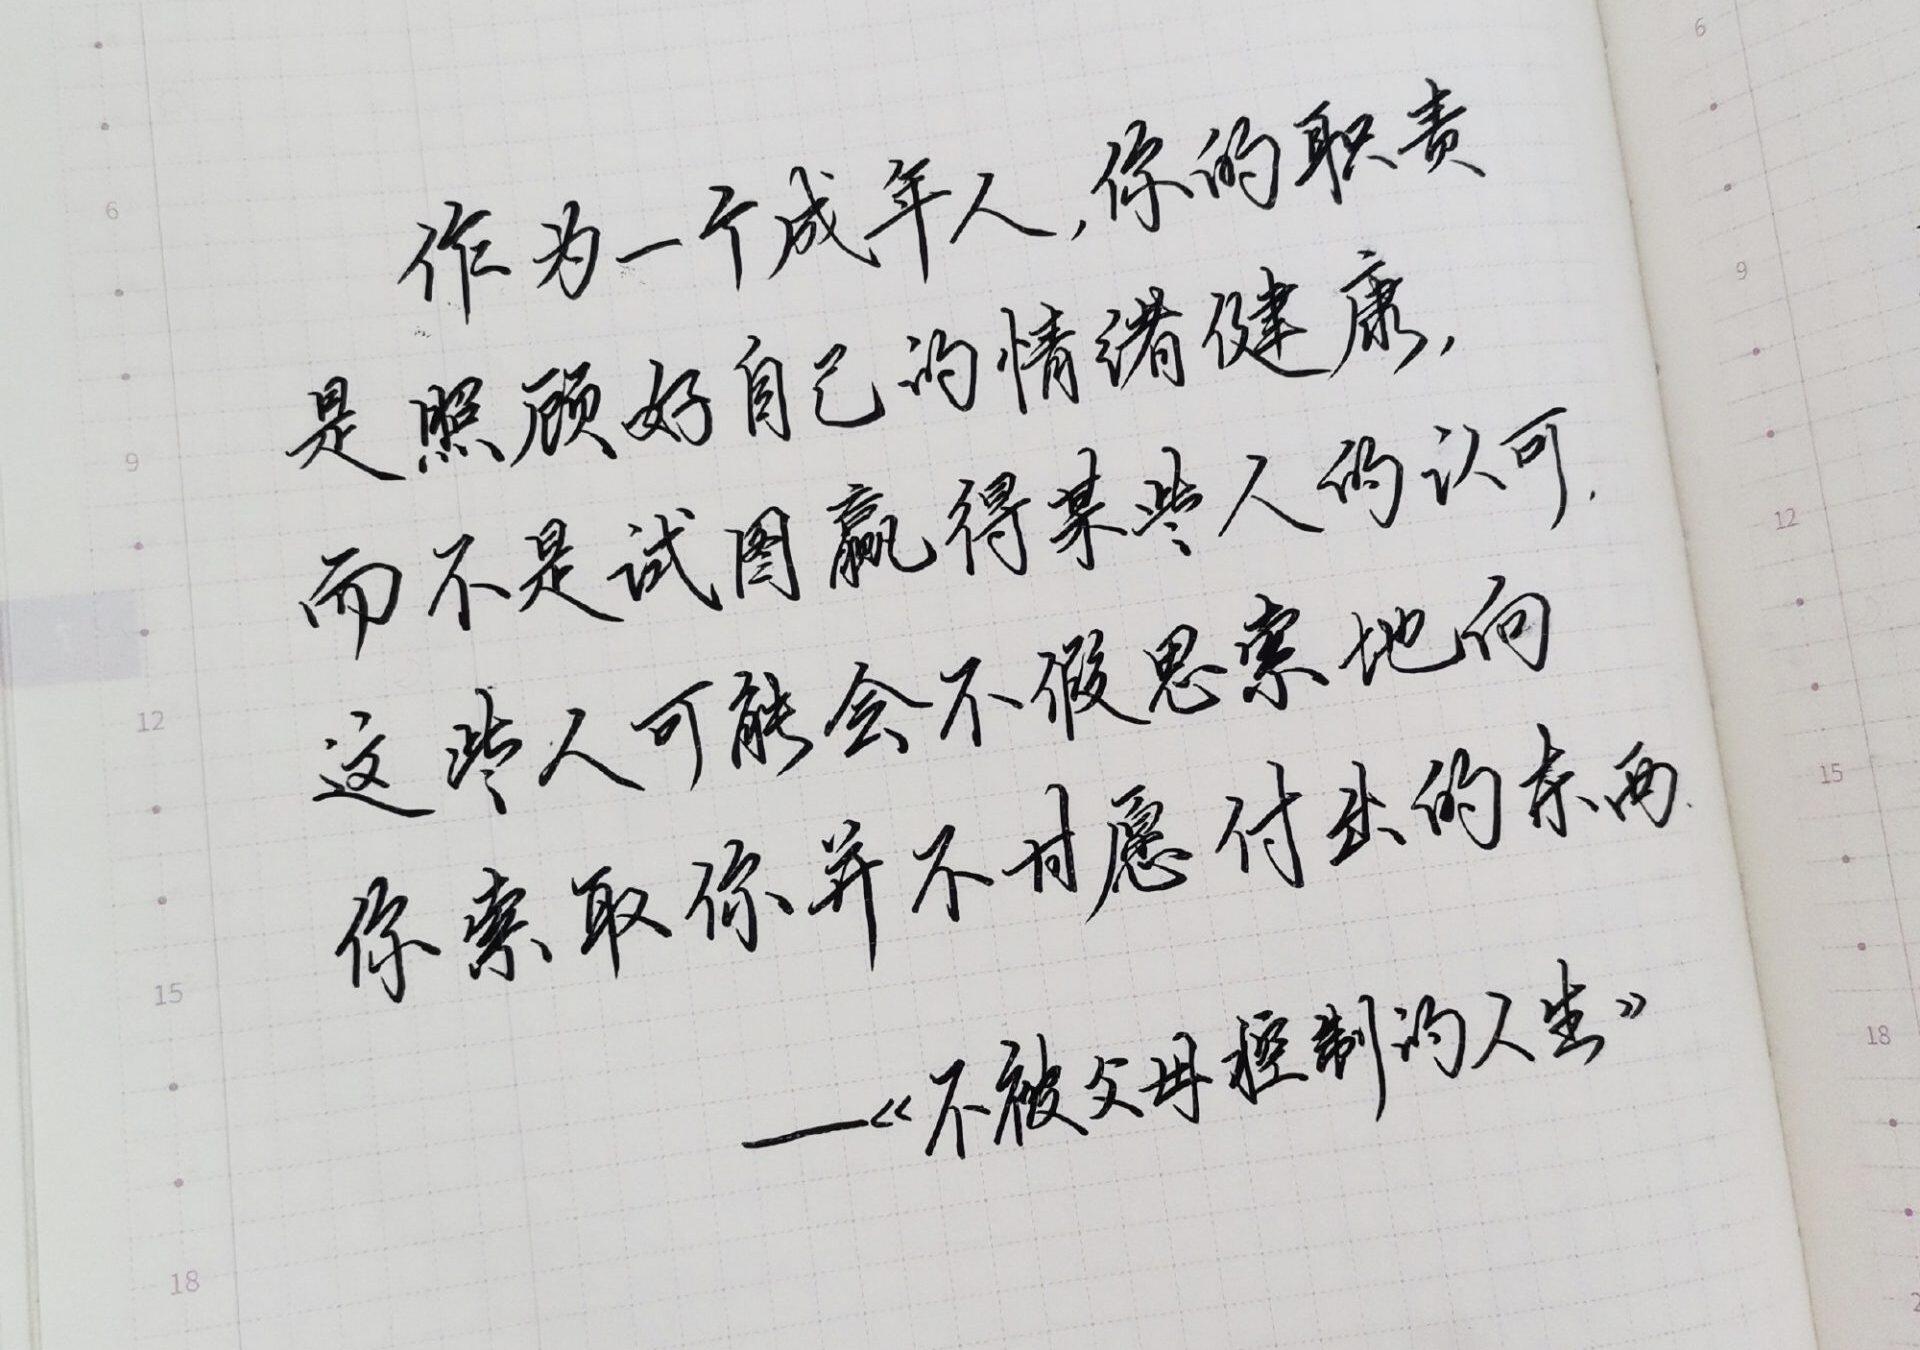 作为一个成年人,你的职责
是照顾好自己的情绪健康,
而不是试图赢得某些人的认可.
这些人可能会不假思索地向
你索取你并不愿付出的东西.
—《不被父母控制的人生》
6
9
12
15
18
6
9
12
15
18